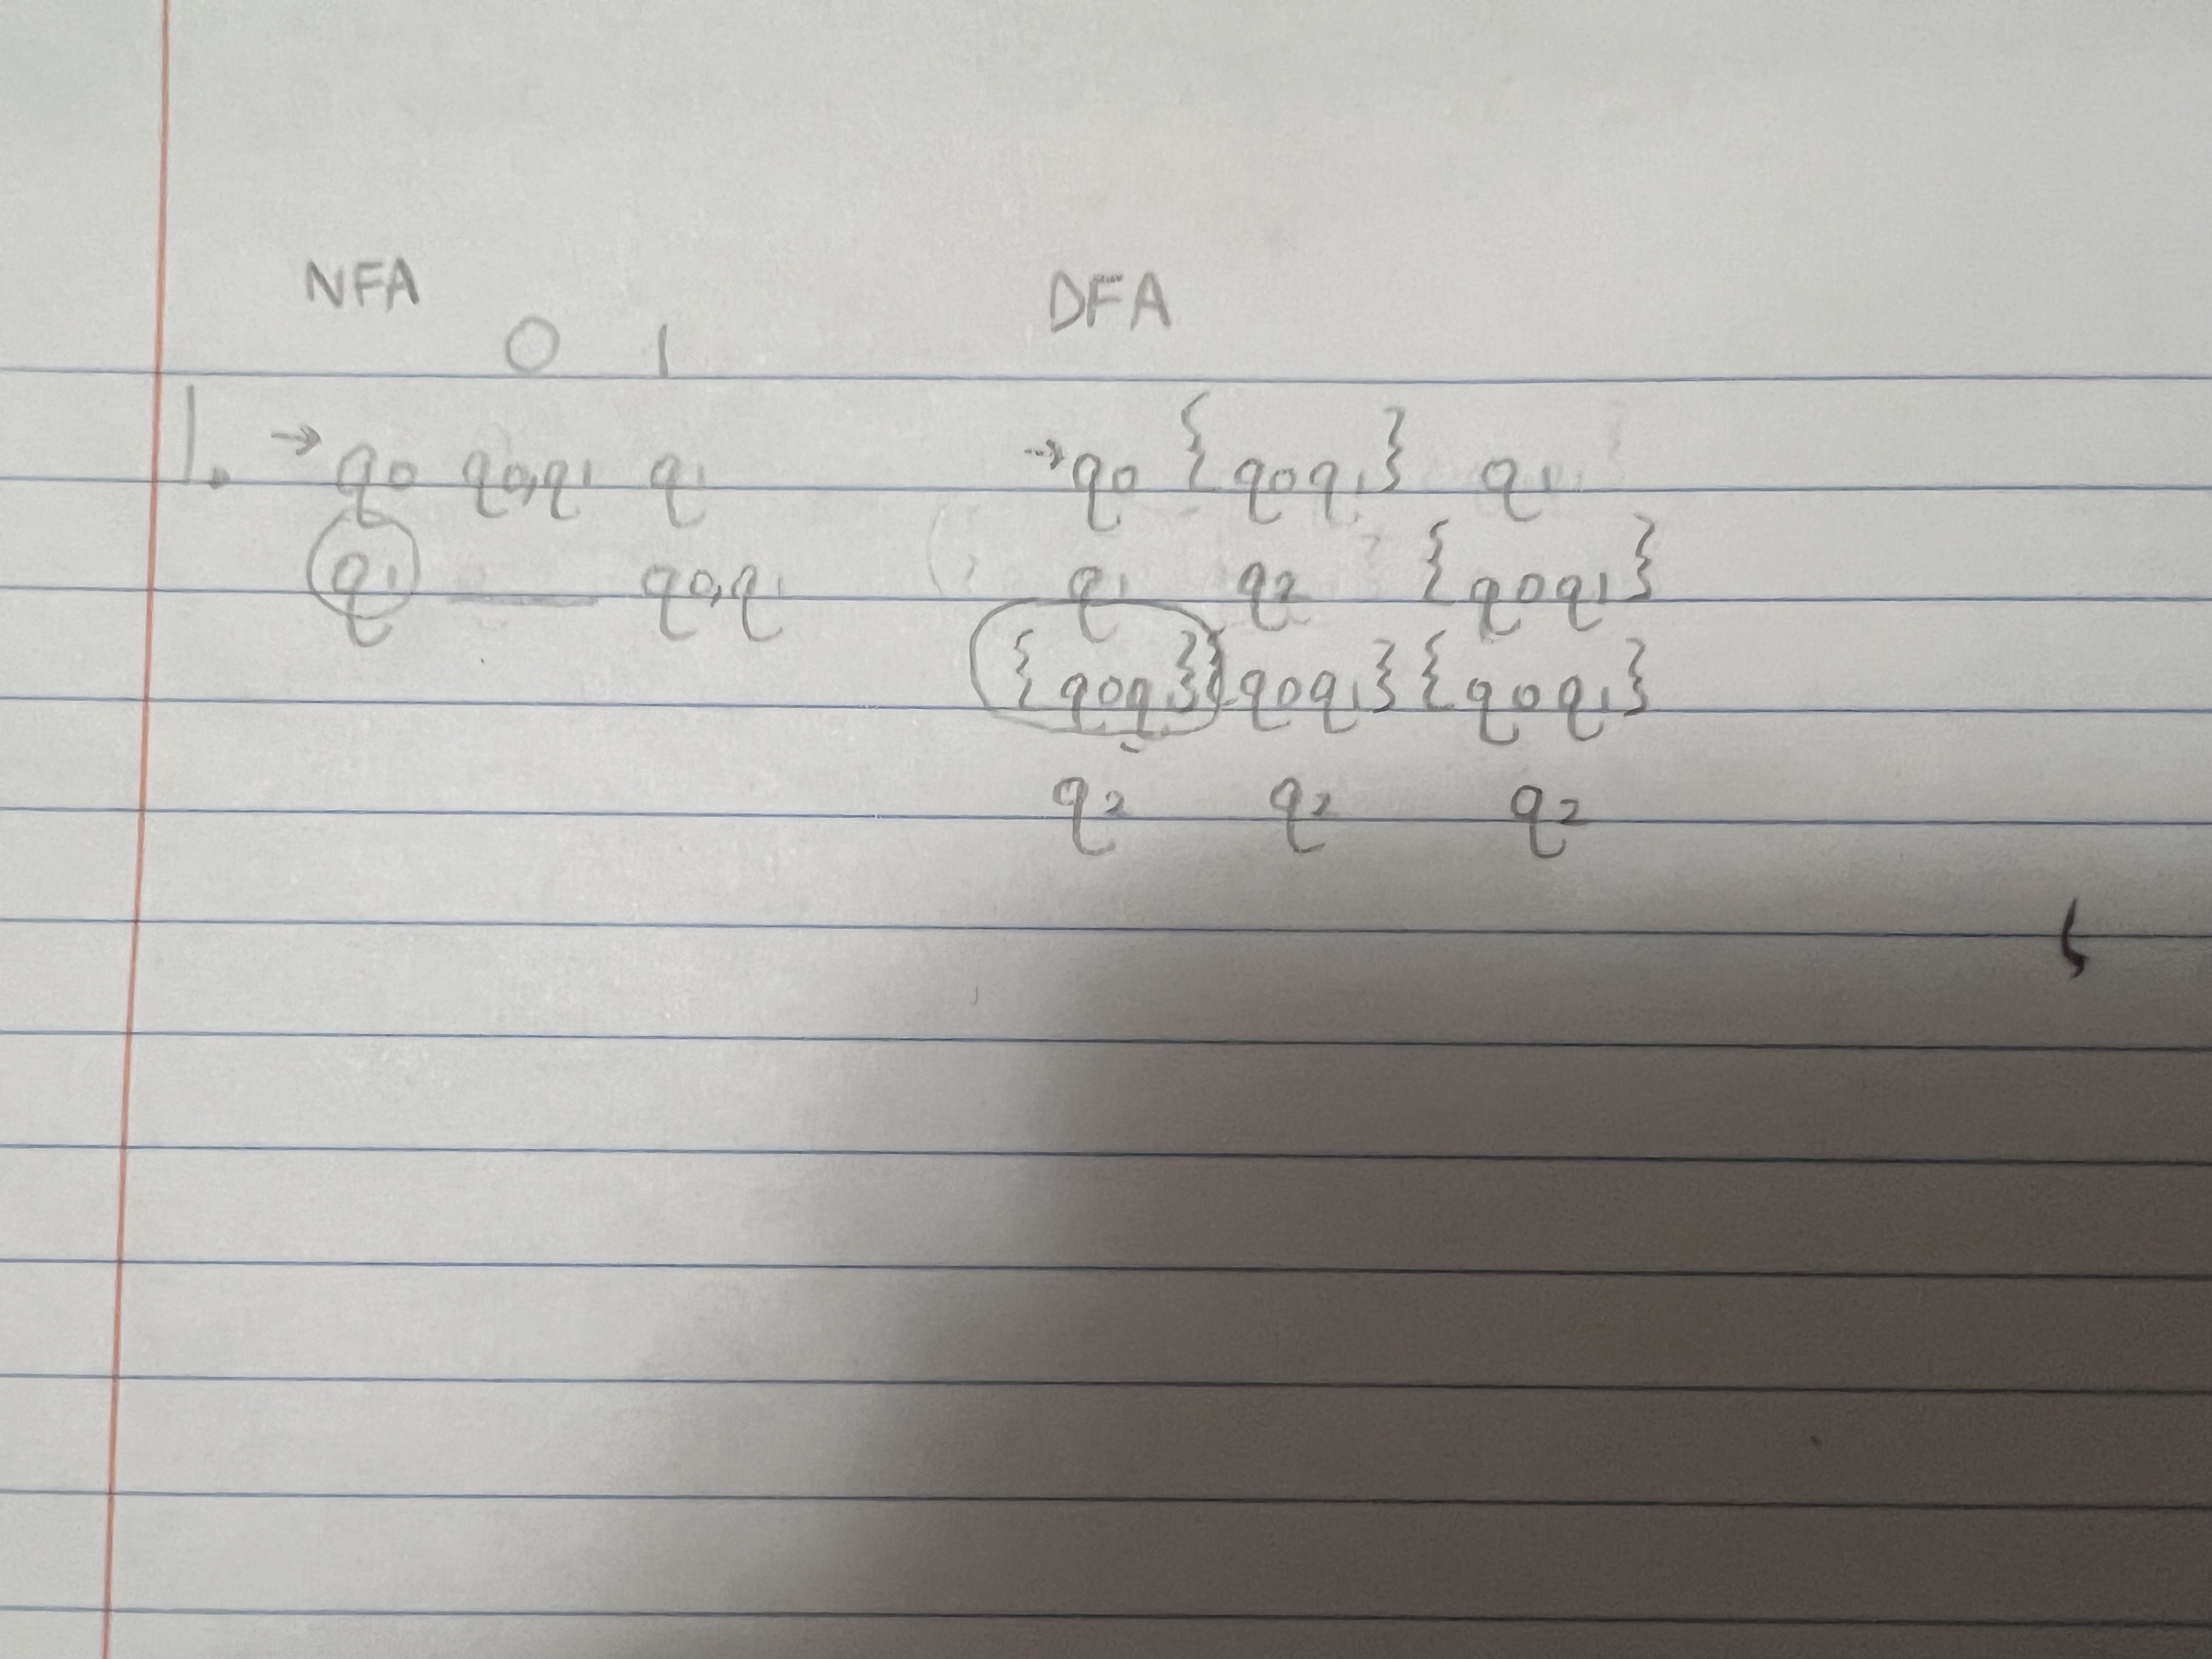 NFA DFA
0 1
1. → q0 q0,q1 q1 → q0 {q0q1} q1
q1 — q0,q1 q1 q2 {q0q1}
{q0q1} {q0q1} {q0q1}
q2 q2 q2